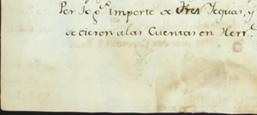 Por Jog.ᵉ importe de tres Yeguas, y
se cieron alas Cuentas en Herr.ᵃ